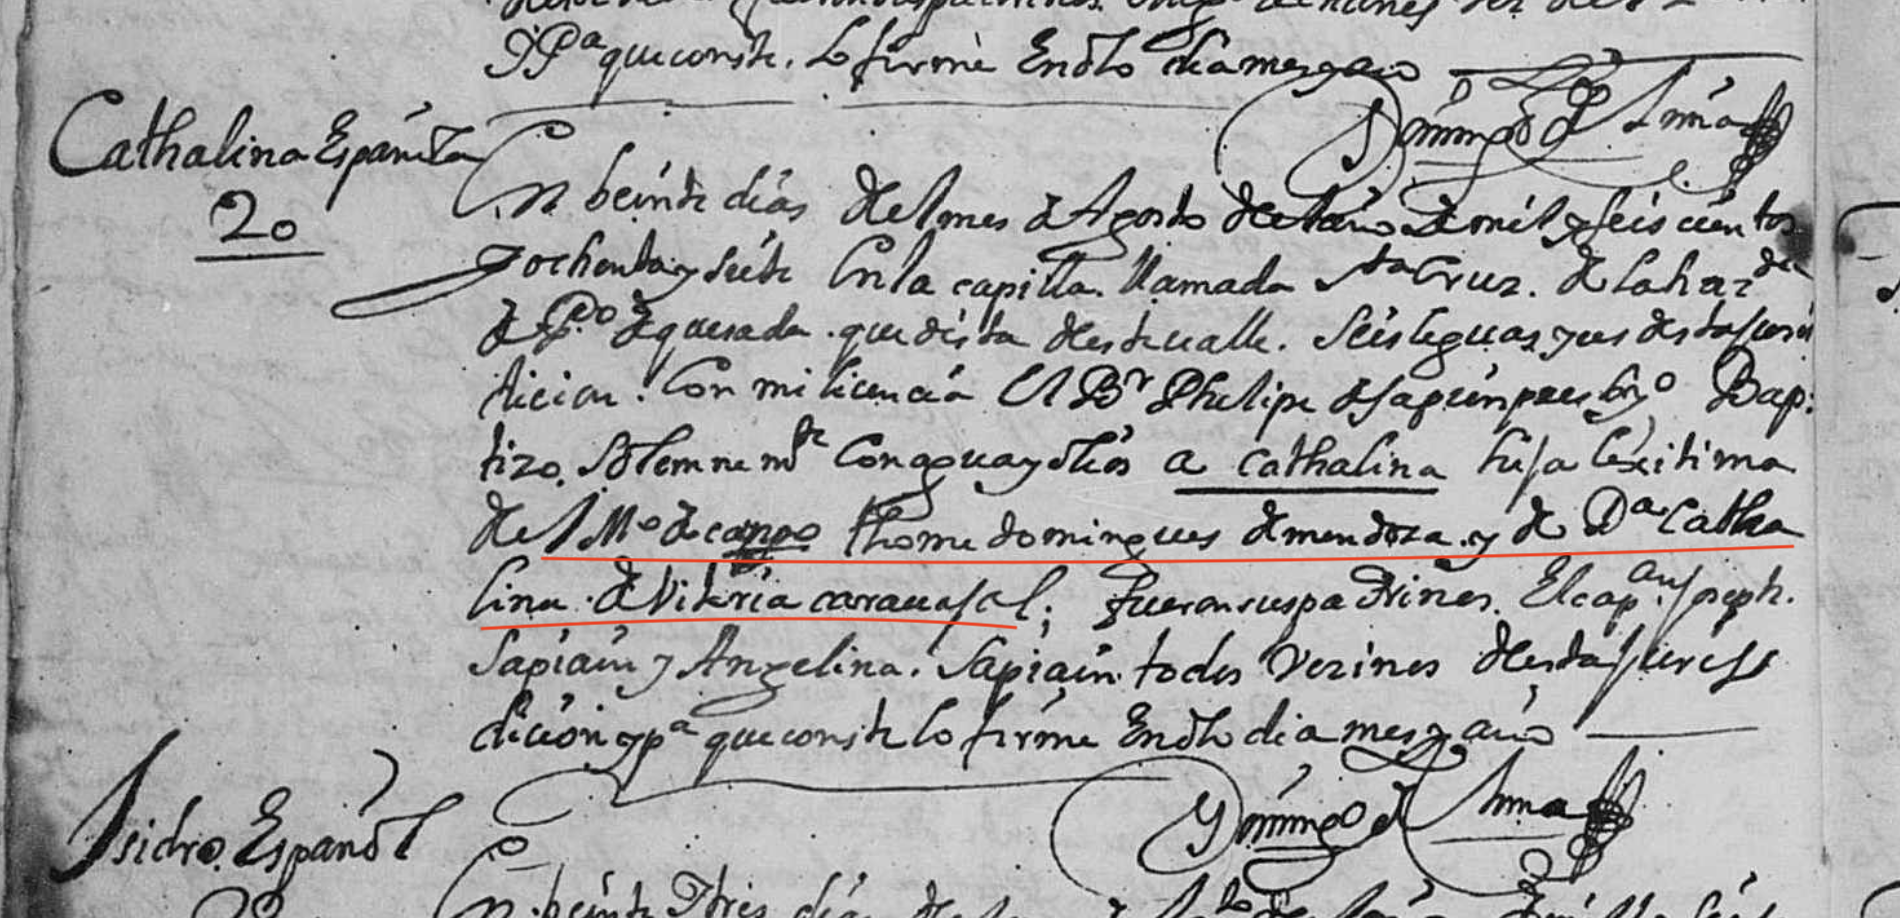 y Pa que conste. Lo firmè En dho dia mes y año
Domingo de
Cathalina Española
20
En beinte dias del mes de Agosto del año de mil y seis cientos
y ochenta y siete En la capilla. llamada Sta Cruz. de la haz.da
de P.o de quesada. que dista deste ualle. Seis leguas y es desta juris
dicion. Con mi licencia El Br Phelipe de Sapien presbyo Bap:
tizo. Solemne mte Con agua y olios a cathalina hija lexitima
del Mo de campo thome domingues de mendoza. y de Da Catha
lina. de Vitoria carauajal; fueron sus padrinos. El cap.an Joseph.
Sapiain y Angelina. Sapiain. todos Vezinos desta juris
dicion y pa que conste lo firme En dho dia mes y año
Domingo de
Isidro. Español
En beinte y tres dias